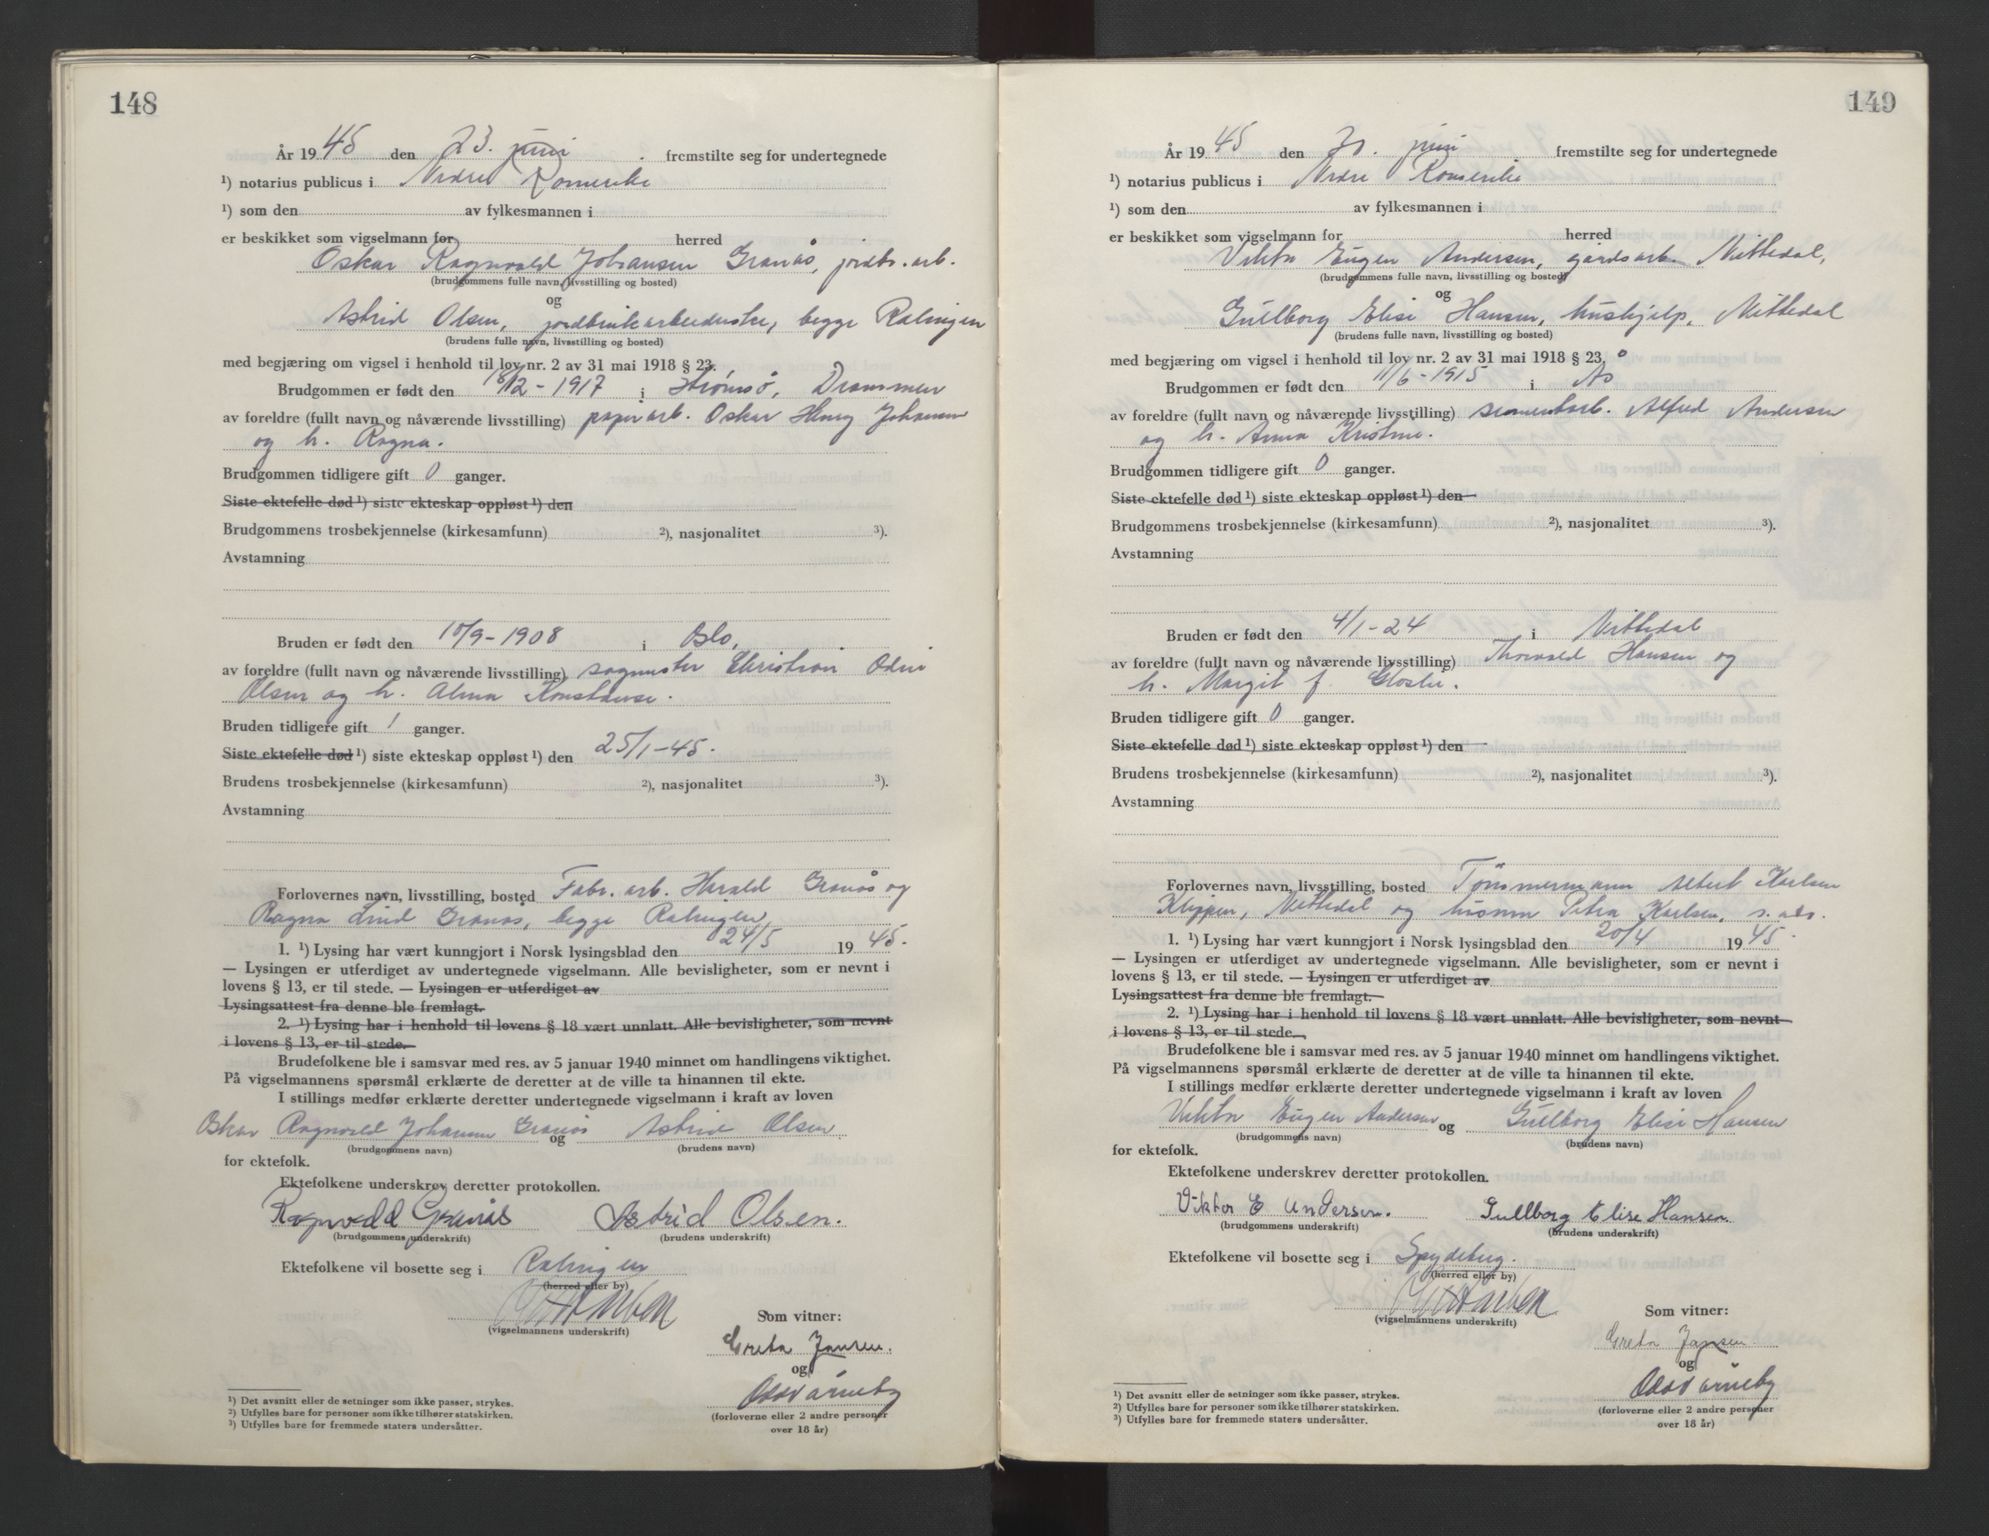 148
År 1945 den 23. juni fremstilte seg for undertegnede
¹) notarius publicus i Nedre Romerike
¹) som den av fylkesmannen i
er beskikket som vigselmann for herred
Oskar Ragnvald Johansen Granås, jordbr. arb.
(brudgommens fulle navn, livsstilling og bosted)
og
Astrid Olsen, jordbrukarbeiderske, begge Rælingen
(brudens fulle navn, livsstilling og bosted)
med begjæring om vigsel i henhold til lov nr. 2 av 31 mai 1918 § 23.
Brudgommen er født den /12-1917 i Strømsø, Drammen
av foreldre (fullt navn og nåværende livsstilling) papirarb. Oskar Henry Johansen
og h. Ragna.
Brudgommen tidligere gift 0 ganger.
Siste ektefelle død ¹) siste ekteskap oppløst ¹) den
Brudgommens trosbekjennelse (kirkesamfunn) ²), nasjonalitet ³).
Avstamning
Bruden er født den 10/9-1908 i Oslo,
av foreldre (fullt navn og nåværende livsstilling) sagmester Christian Odin
Olsen og h. Alma Konstanse.
Bruden tidligere gift 1 ganger.
Siste ektefelle død ¹) siste ekteskap oppløst ¹) den 25/1-45.
Brudens trosbekjennelse (kirkesamfunn) ²), nasjonalitet ³).
Avstamning
Forlovernes navn, livsstilling, bosted Fabr. arb. Harald Granås og
Ragna Lind Granås, begge Rælingen
1. ¹) Lysing har vært kunngjort i Norsk lysingsblad den 24/5 1945.
— Lysingen er utferdiget av undertegnede vigselmann. Alle bevisligheter, som er nevnt i
lovens § 13, er til stede. — Lysingen er utferdiget av
Lysingsattest fra denne ble fremlagt.
2. ¹) Lysing har i henhold til lovens § 18 vært unnlatt. Alle bevisligheter, som nevnt
i lovens § 13, er til stede.
Brudefolkene ble i samsvar med res. av 5 januar 1940 minnet om handlingens viktighet.
På vigselmannens spørsmål erklærte de deretter at de ville ta hinannen til ekte.
I stillings medfør erklærte deretter undertegnede vigselmann i kraft av loven
Oskar Ragnvald Johansen Granås og Astrid Olsen
(brudgommens navn) (brudens navn)
for ektefolk.
Ektefolkene underskrev deretter protokollen.
Ragnvald Granås Astrid Olsen.
(brudgommens underskrift) (brudens underskrift)
Ektefolkene vil bosette seg i Rælingen
(herred eller by)
(vigselmannens underskrift)
Som vitner:
Greta Jansen.
og
Odd Årneby
(forloverne eller 2 andre personer
over 18 år)
¹) Det avsnitt eller de setninger som ikke passer, strykes.
²) Utfylles bare for personer som ikke tilhører statskirken.
³) Utfylles bare for fremmede staters undersåtter.
149
År 1945 den 30. juni fremstilte seg for undertegnede
¹) notarius publicus i Nedre Romerike
¹) som den av fylkesmannen i
er beskikket som vigselmann for herred
Viktor Eugen Andersen, gårdsarb. Nittedal,
(brudgommens fulle navn, livsstilling og bosted)
og
Gullborg Elise Hansen, hushjelp, Nittedal
(brudens fulle navn, livsstilling og bosted)
med begjæring om vigsel i henhold til lov nr. 2 av 31 mai 1918 § 23,
Brudgommen er født den 11/6-1915 i Ås
av foreldre (fullt navn og nåværende livsstilling) sementarb. Alfred Andersen
og h. Anna Kristine.
Brudgommen tidligere gift 0 ganger.
Siste ektefelle død ¹) siste ekteskap oppløst ¹) den
Brudgommens trosbekjennelse (kirkesamfunn) ²), nasjonalitet ³).
Avstamning
Bruden er født den 4/1-24 i Nittedal
av foreldre (fullt navn og nåværende livsstilling) Thorvald Hansen og
h. Margit f. Gloslie.
Bruden tidligere gift 0 ganger.
Siste ektefelle død ¹) siste ekteskap oppløst ¹) den
Brudens trosbekjennelse (kirkesamfunn) ²), nasjonalitet ³).
Avstamning
Forlovernes navn, livsstilling, bosted Tømmermann Albert Karlsen
Klippen, Nittedal og husmor Petra Karlsen, s. adr.
1. ¹) Lysing har vært kunngjort i Norsk lysingsblad den 20/4 1945.
— Lysingen er utferdiget av undertegnede vigselmann. Alle bevisligheter, som er nevnt i
lovens § 13, er til stede. — Lysingen er utferdiget av
Lysingsattest fra denne ble fremlagt.
2. ¹) Lysing har i henhold til lovens § 18 vært unnlatt. Alle bevisligheter, som nevnt
i lovens § 13, er til stede.
Brudefolkene ble i samsvar med res. av 5 januar 1940 minnet om handlingens viktighet.
På vigselmannens spørsmål erklærte de deretter at de ville ta hinannen til ekte.
I stillings medfør erklærte deretter undertegnede vigselmann i kraft av loven
Viktor Eugen Andersen og Gullborg Elise Hansen
(brudgommens navn) (brudens navn)
for ektefolk.
Ektefolkene underskrev deretter protokollen.
Viktor E Andersen. Gullborg Elise Hansen.
(brudgommens underskrift) (brudens underskrift)
Ektefolkene vil bosette seg i Spydeberg.
(herred eller by)
(vigselmannens underskrift)
Som vitner:
Greta Jansen.
og
Odd Årneby
(forloverne eller 2 andre personer
over 18 år)
¹) Det avsnitt eller de setninger som ikke passer, strykes.
²) Utfylles bare for personer som ikke tilhører statskirken.
³) Utfylles bare for fremmede staters undersåtter.